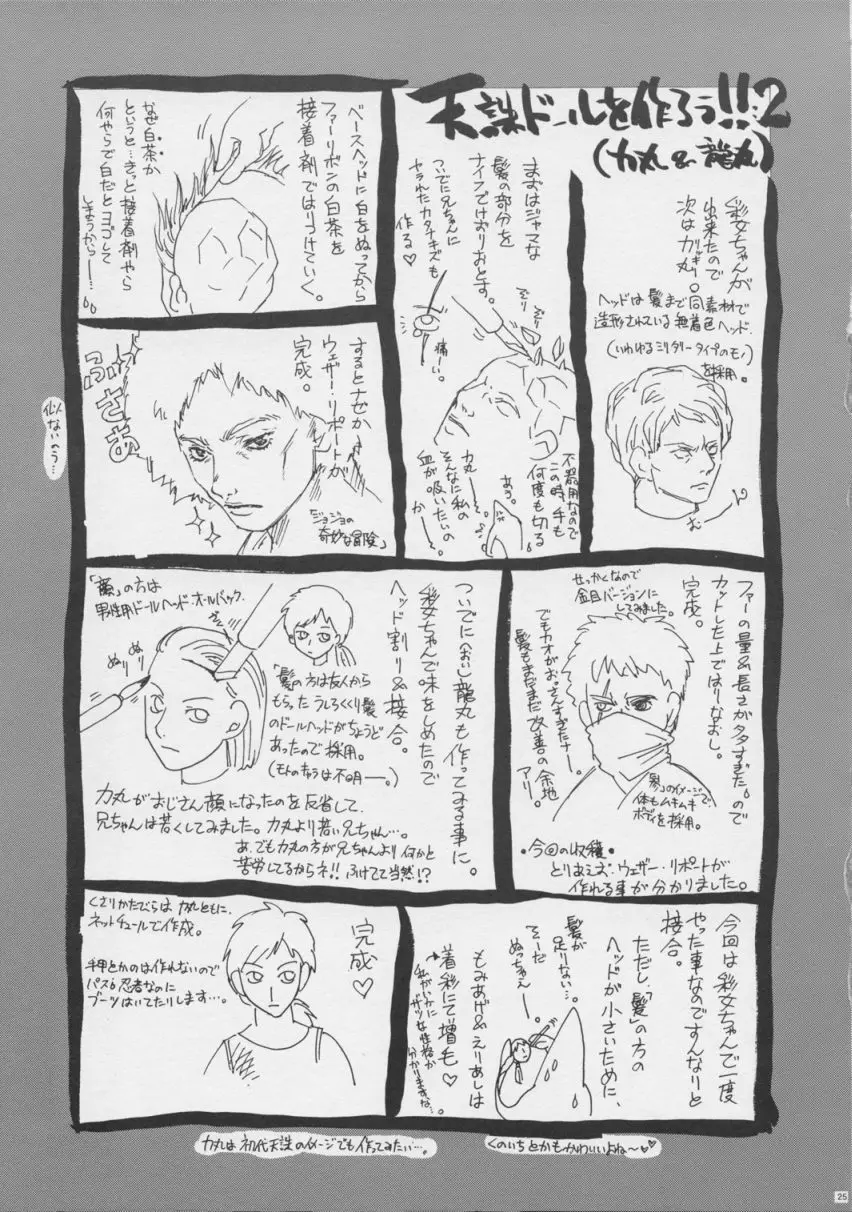 天誅ドールを作ろう!!2
(力丸&龍丸)
彩女ちゃんが
出来たので
次はガッキリ力丸。
ヘッドは髪まで同素材で
造形されている無着色ヘッド.
(いわゆるミリタリータイプのモノ)
を採用。
まずはジャマな
髪の部分を
ナイフでけずりおとす。
ついでに兄ちゃんに
ヤラれたカタナキズも
作る♡
痛ーい。
ぞり
ぞり
不器用なので
この時、手も
何度も切る
あぅ。
力丸ー。
そんなに私の
血が吸いたいの
かー。
ベースヘッドに白をぬってから
ファーリボンの白茶を
接着剤ではりつけていく。
なぜ白茶か
というと…きっと接着剤やら
何やらで白だとヨゴして
しまうからー…。
するとナゼか
ウェザー・リポートが
完成。
ふさぁ
「ジョジョの
奇妙な冒険」
似ないのう…
ファーの量&長さが多すぎた。ので
カットした上ではりなおし。
完成。
せっかくなので
金目バージョンに
してみました。
でもカオがおっさんすぎたナー。
髪もまだまだ改善の余地
アリ。
「参」のイメージで
体もムキムキ
ボディを採用。
・今回の収穫・
とりあえず、ウェザー・リポートが
作れる事が分かりました。
ついでに(おい)龍丸も作ってみる事に。
彩女ちゃんで味をしめたので
ヘッド割り&接合。
「顔」の方は
男性用ドールヘッド・オールバック.
ぬり
ぬり
「髪」の方は友人から
もらったうしろくくり髪
のドールヘッドがちょうど
あったので採用。
(モトのキャラは不明ー。)
力丸がおじさん顔になったのを反省して、
兄ちゃんは若くしてみました。力丸より若い兄ちゃん…。
あ、でも力丸の方が兄ちゃんより何かと
苦労してるからネ!!ふけてて当然!?
今回は彩女ちゃんで一度
やった事なのですんなりと
接合。
ただし、「髪」の方の
ヘッドが小さいために、
髪が
足りない…。
そーだ
ぬっちゃえー。
もみあげ&えりあしは
着彩にて増毛♡
私がいかに
ザツな性格か
分かりますな…。
完成♡
くさりかたびらは力丸ともに、
ネットチュールで作成。
手甲とかのは作れないので
パス。忍者なのに
ブーツはいてたりします…。
力丸は初代天誅のイメージでも作ってみたい…。
くのいちとかもかわいいよね〜♡
25